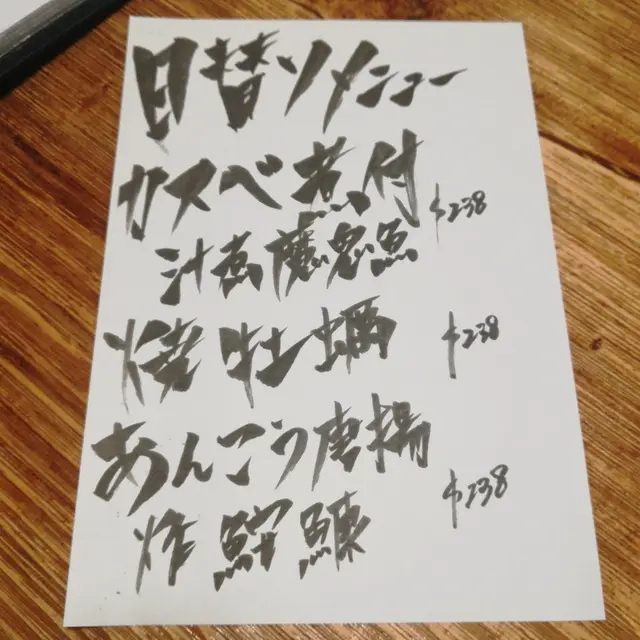 日替りメニュー
カスベ煮付 $238
汁煮魔鬼魚
$238
あんこう唐揚 $238
炸鮟鱇